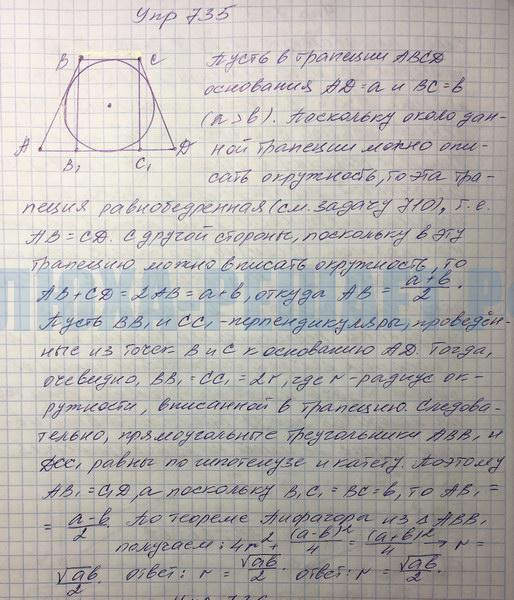 Упр 735
B C
A B₁ C₁ D
Пусть в трапеции ABCD
основания AD=a и BC=b
(a>b). Поскольку около дан-
ной трапеции можно опи-
сать окружность, то эта тра-
пеция равнобедренная (см. задачу 710), т.е.
AB=CD. С другой стороны, поскольку в эту
трапецию можно вписать окружность, то
AB+CD=2AB=a+b, откуда AB = (a+b)/2.
Пусть BB₁ и CC₁ - перпендикуляры, проведён-
ные из точек B и C к основанию AD. Тогда,
очевидно, BB₁=CC₁=2r, где r - радиус ок-
ружности, вписанной в трапецию. Следова-
тельно, прямоугольные треугольники ABB₁ и
DCC₁ равны по гипотенузе и катету. Поэтому
AB₁=C₁D, а поскольку B₁C₁=BC=b, то AB₁=
= (a-b)/2. По теореме Пифагора из Δ ABB₁
получаем: 4r²+(a-b)²/4=(a+b)²/4→r=
√ab/2. ответ: r=√ab/2. ответ: r=√ab/2.